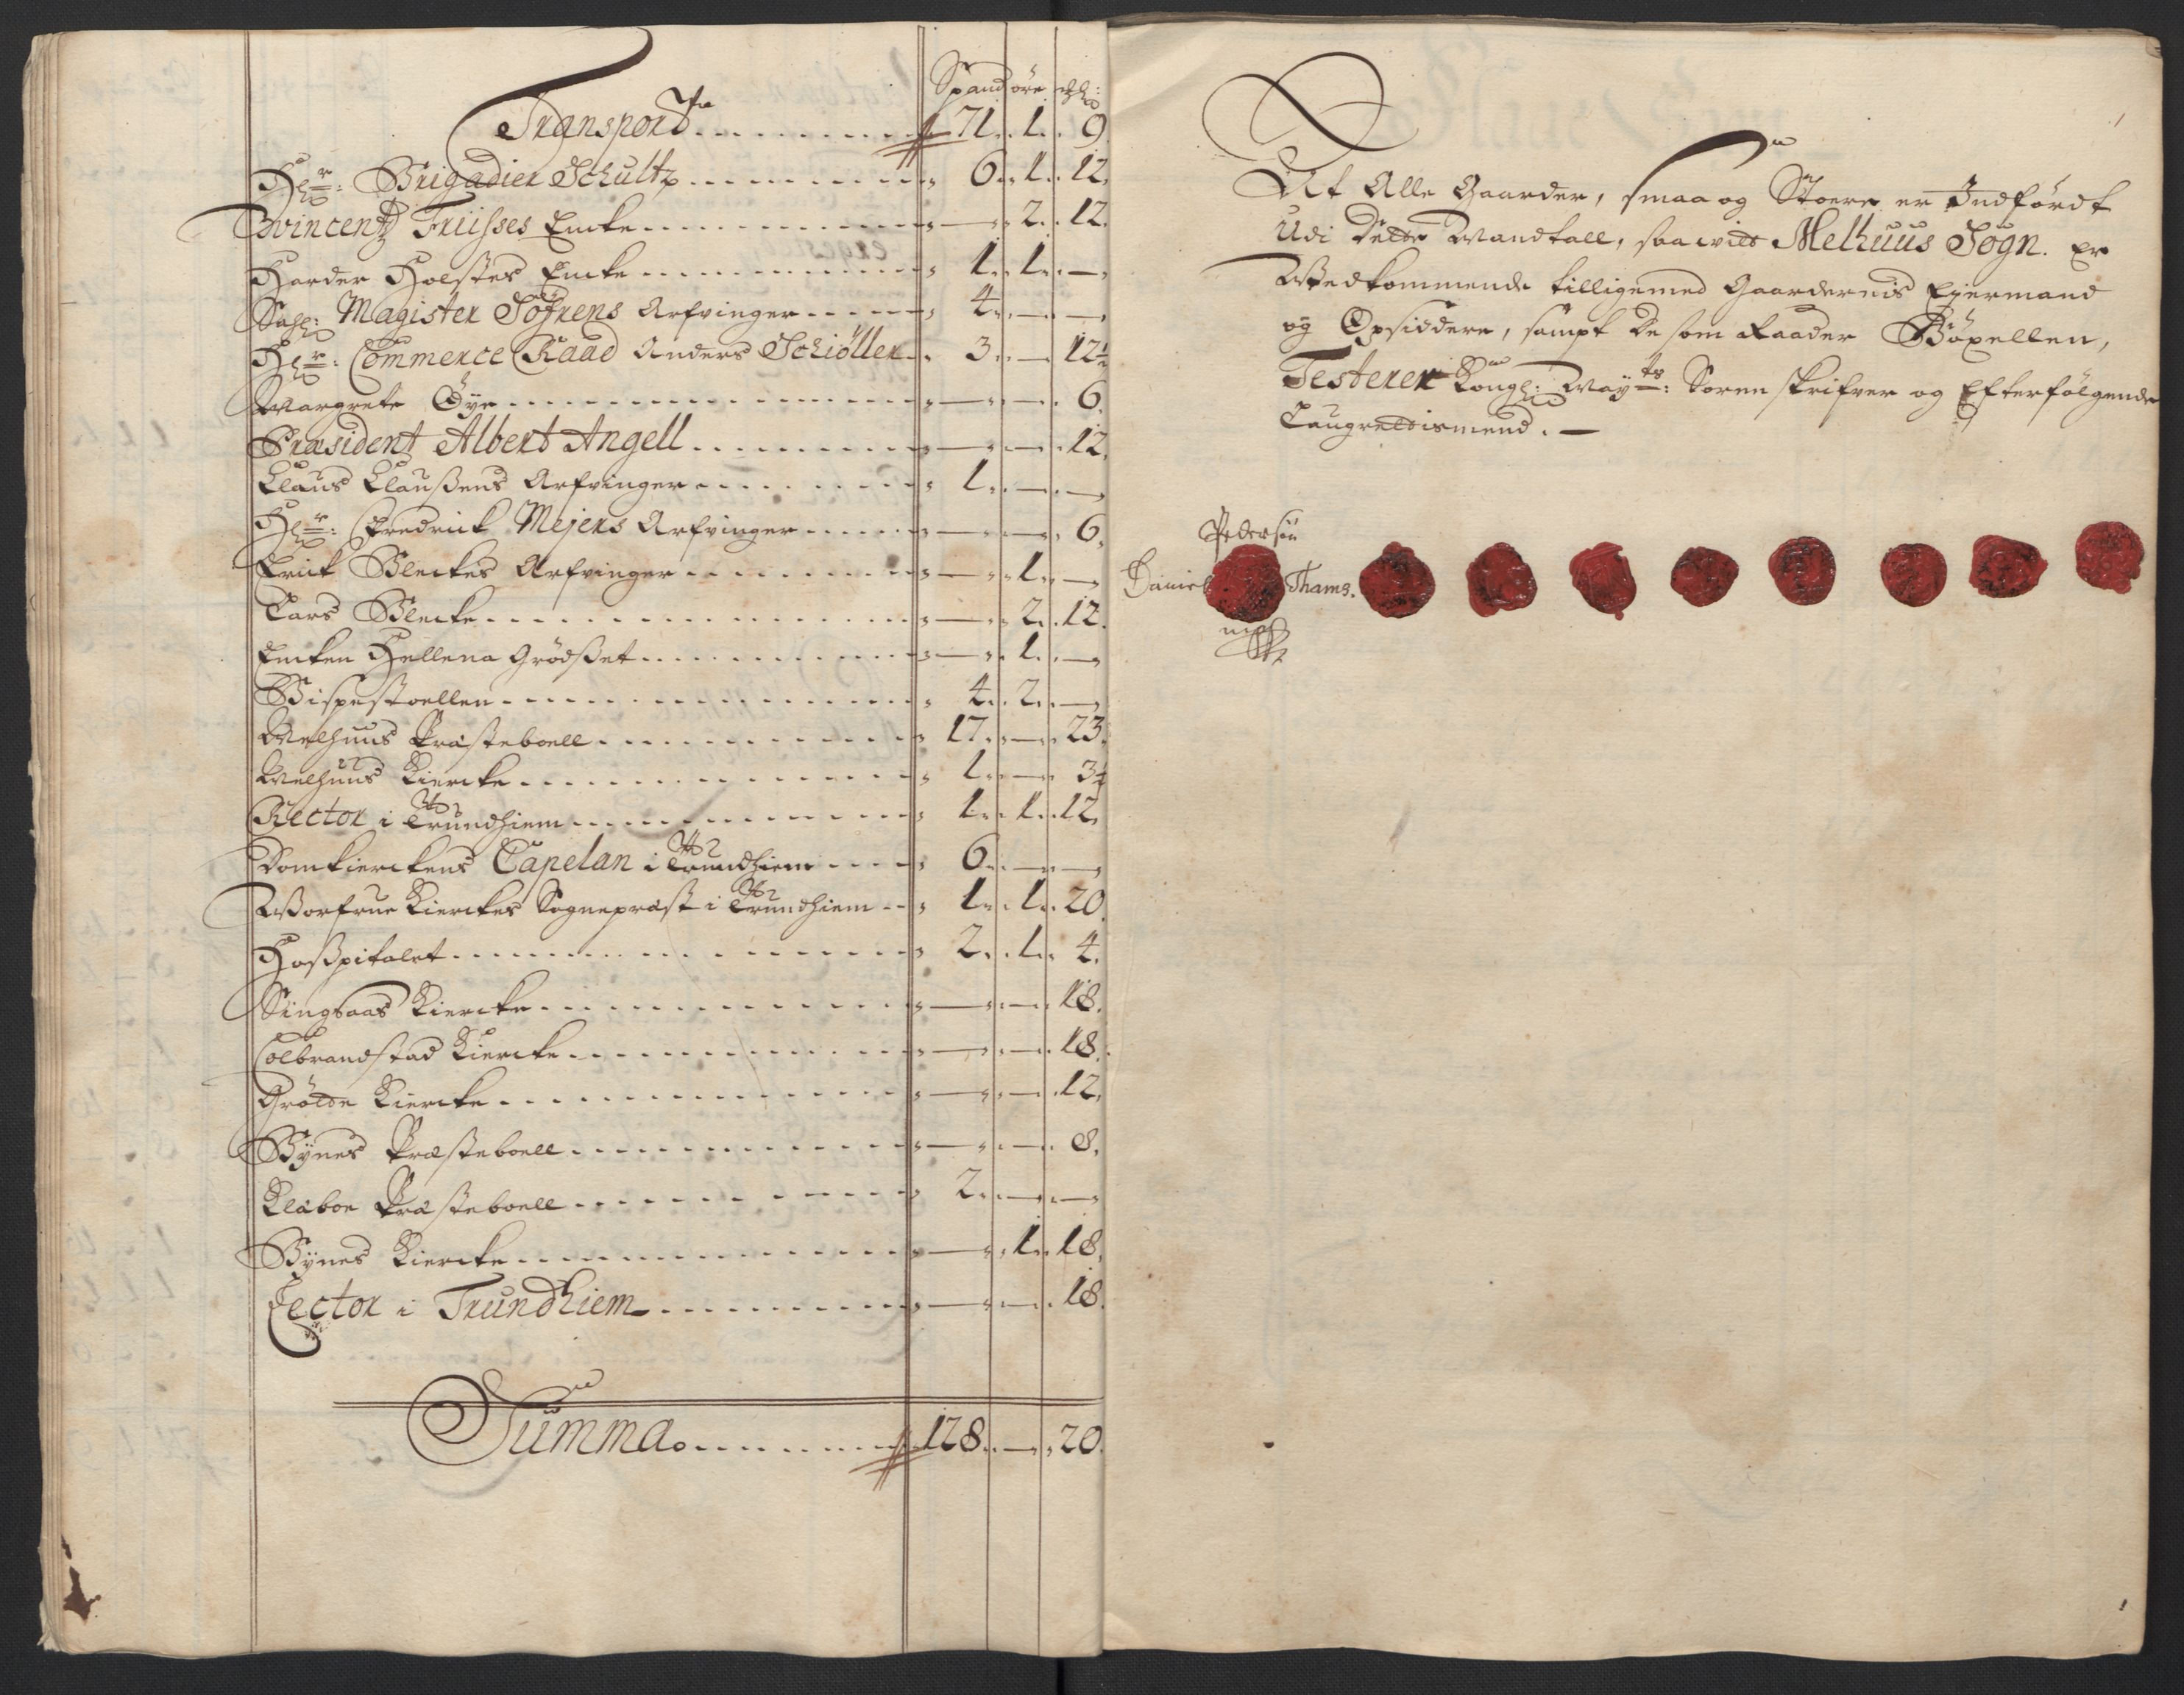 Spand øre
Transport 71. 1. 9
Hr: Brigadier Schultz 6. 1. 12.
Vincentz Friisses Encke — 2. 12.
Harder Holstes Encke 1. 1. —
Sahl: Magister Søfrens Arfvinger 4. — —
Hr: Commerce Raad Anders Schiøller 3. — 12½
Margrete Øye — — 6.
Præsident Albert Angell — — 12.
Claus Claussens Arfvinger 1. — —
Hr: Fredrick Mejers Arfvinger — — 6.
Erick Bleckes Arfvinger — 1. —
Lars Blecke — 2. 12.
Encken Hellena Grødsset — 1. —
Bispestoellen 4. 2. —
Melhuus Præsteboell 17. — 23.
Melhuus Kiercke 1. — 3½
Rector i Trundhiem 1. 1. 12.
Domkierckens Capelan i Trundhiem 6. — —
Vorfrue Kierckes Sognepræst i Trundhiem 1. 1. 20.
Hosspitalet 2. 1. 4.
Singsaas Kiercke — — 18.
Colbrandstad Kiercke — — 18.
Grøtte Kiercke — — 12.
Bynes Præsteboell — — 8.
Klæboe Præsteboell 2. — —
Bynes Kiercke — 1. 18.
Lector i Trundhiem — — 18.
Summa 128. — 20.
At Alle Gaarder, smaa og Stoere er Indførdt
Udi dette Mandtall, saavitt Melhuus Sogn. er
Vedkommende tilligemed Gaardernis Ejermand
og Opsiddere, sampt de som Raader Bøxellen,
Testerer Kongl: Mayts: Soren skrifver og Efterfølgende
Laugrettismend. —
Pedersøn
Daniel Thams.